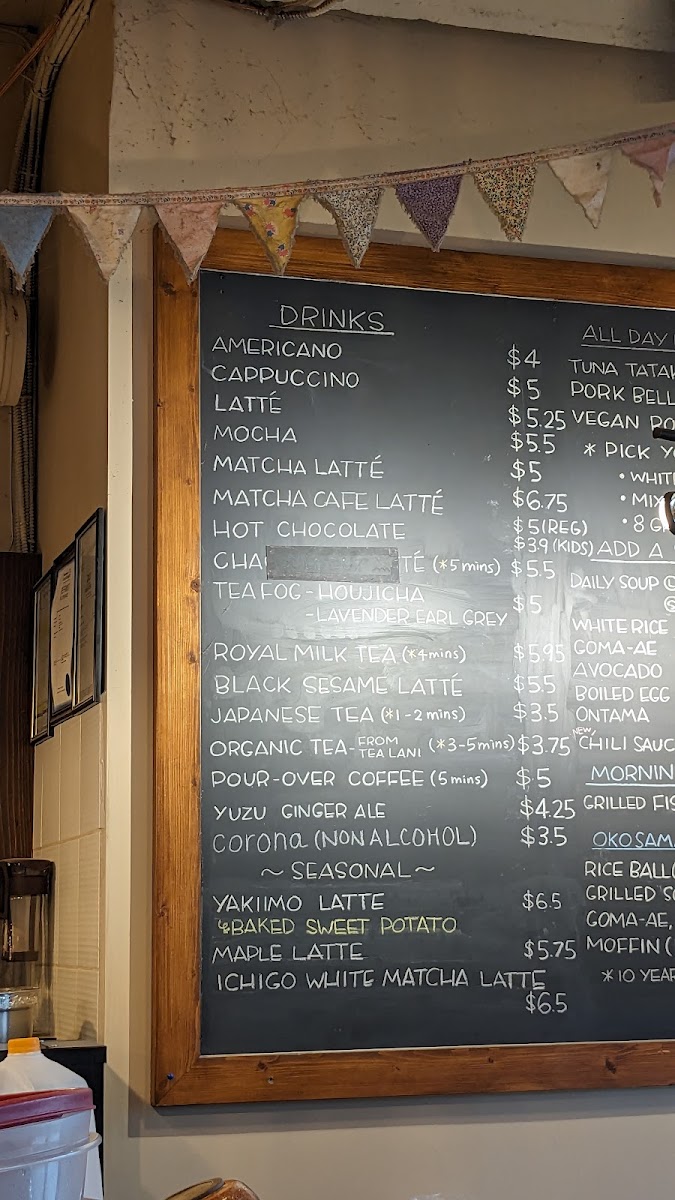 DRINKS
AMERICANO $4
CAPPUCCINO $5
LATTÉ $5.25
MOCHA $5.5
MATCHA LATTÉ $5
MATCHA CAFE LATTÉ $6.75
HOT CHOCOLATE $5(REG)
$3.9(KIDS)
(*5mins) $5.5
TEA FOG-HOUJICHA
-LAVENDER EARL GREY $5
ROYAL MILK TEA(*4mins) $5.95
BLACK SESAME LATTÉ $5.5
JAPANESE TEA(*1-2mins) $3.5
ORGANIC TEA-FROM TEA LANI (*3-5mins) $3.75
POUR-OVER COFFEE(5mins) $5
YUZU GINGER ALE $4.25
corona(NONALCOHOL) $3.5
~SEASONAL~
YAKIIMO LATTE $6.5
↳BAKED SWEET POTATO
MAPLE LATTE $5.75
ICHIGO WHITE MATCHA LATTE
$6.5
ALL DAY
TUNA
PORK
VEGAN
* PICK
•
•
• 8
ADD A
DAILY SOUP
WHITE RICE
GOMA-AE
AVOCADO
BOILED EGG
ONTAMA
NEW CHILI
GRILLED
RICE BALL(
GRILLED
GOMA-AE,
MOFFIN(
*10